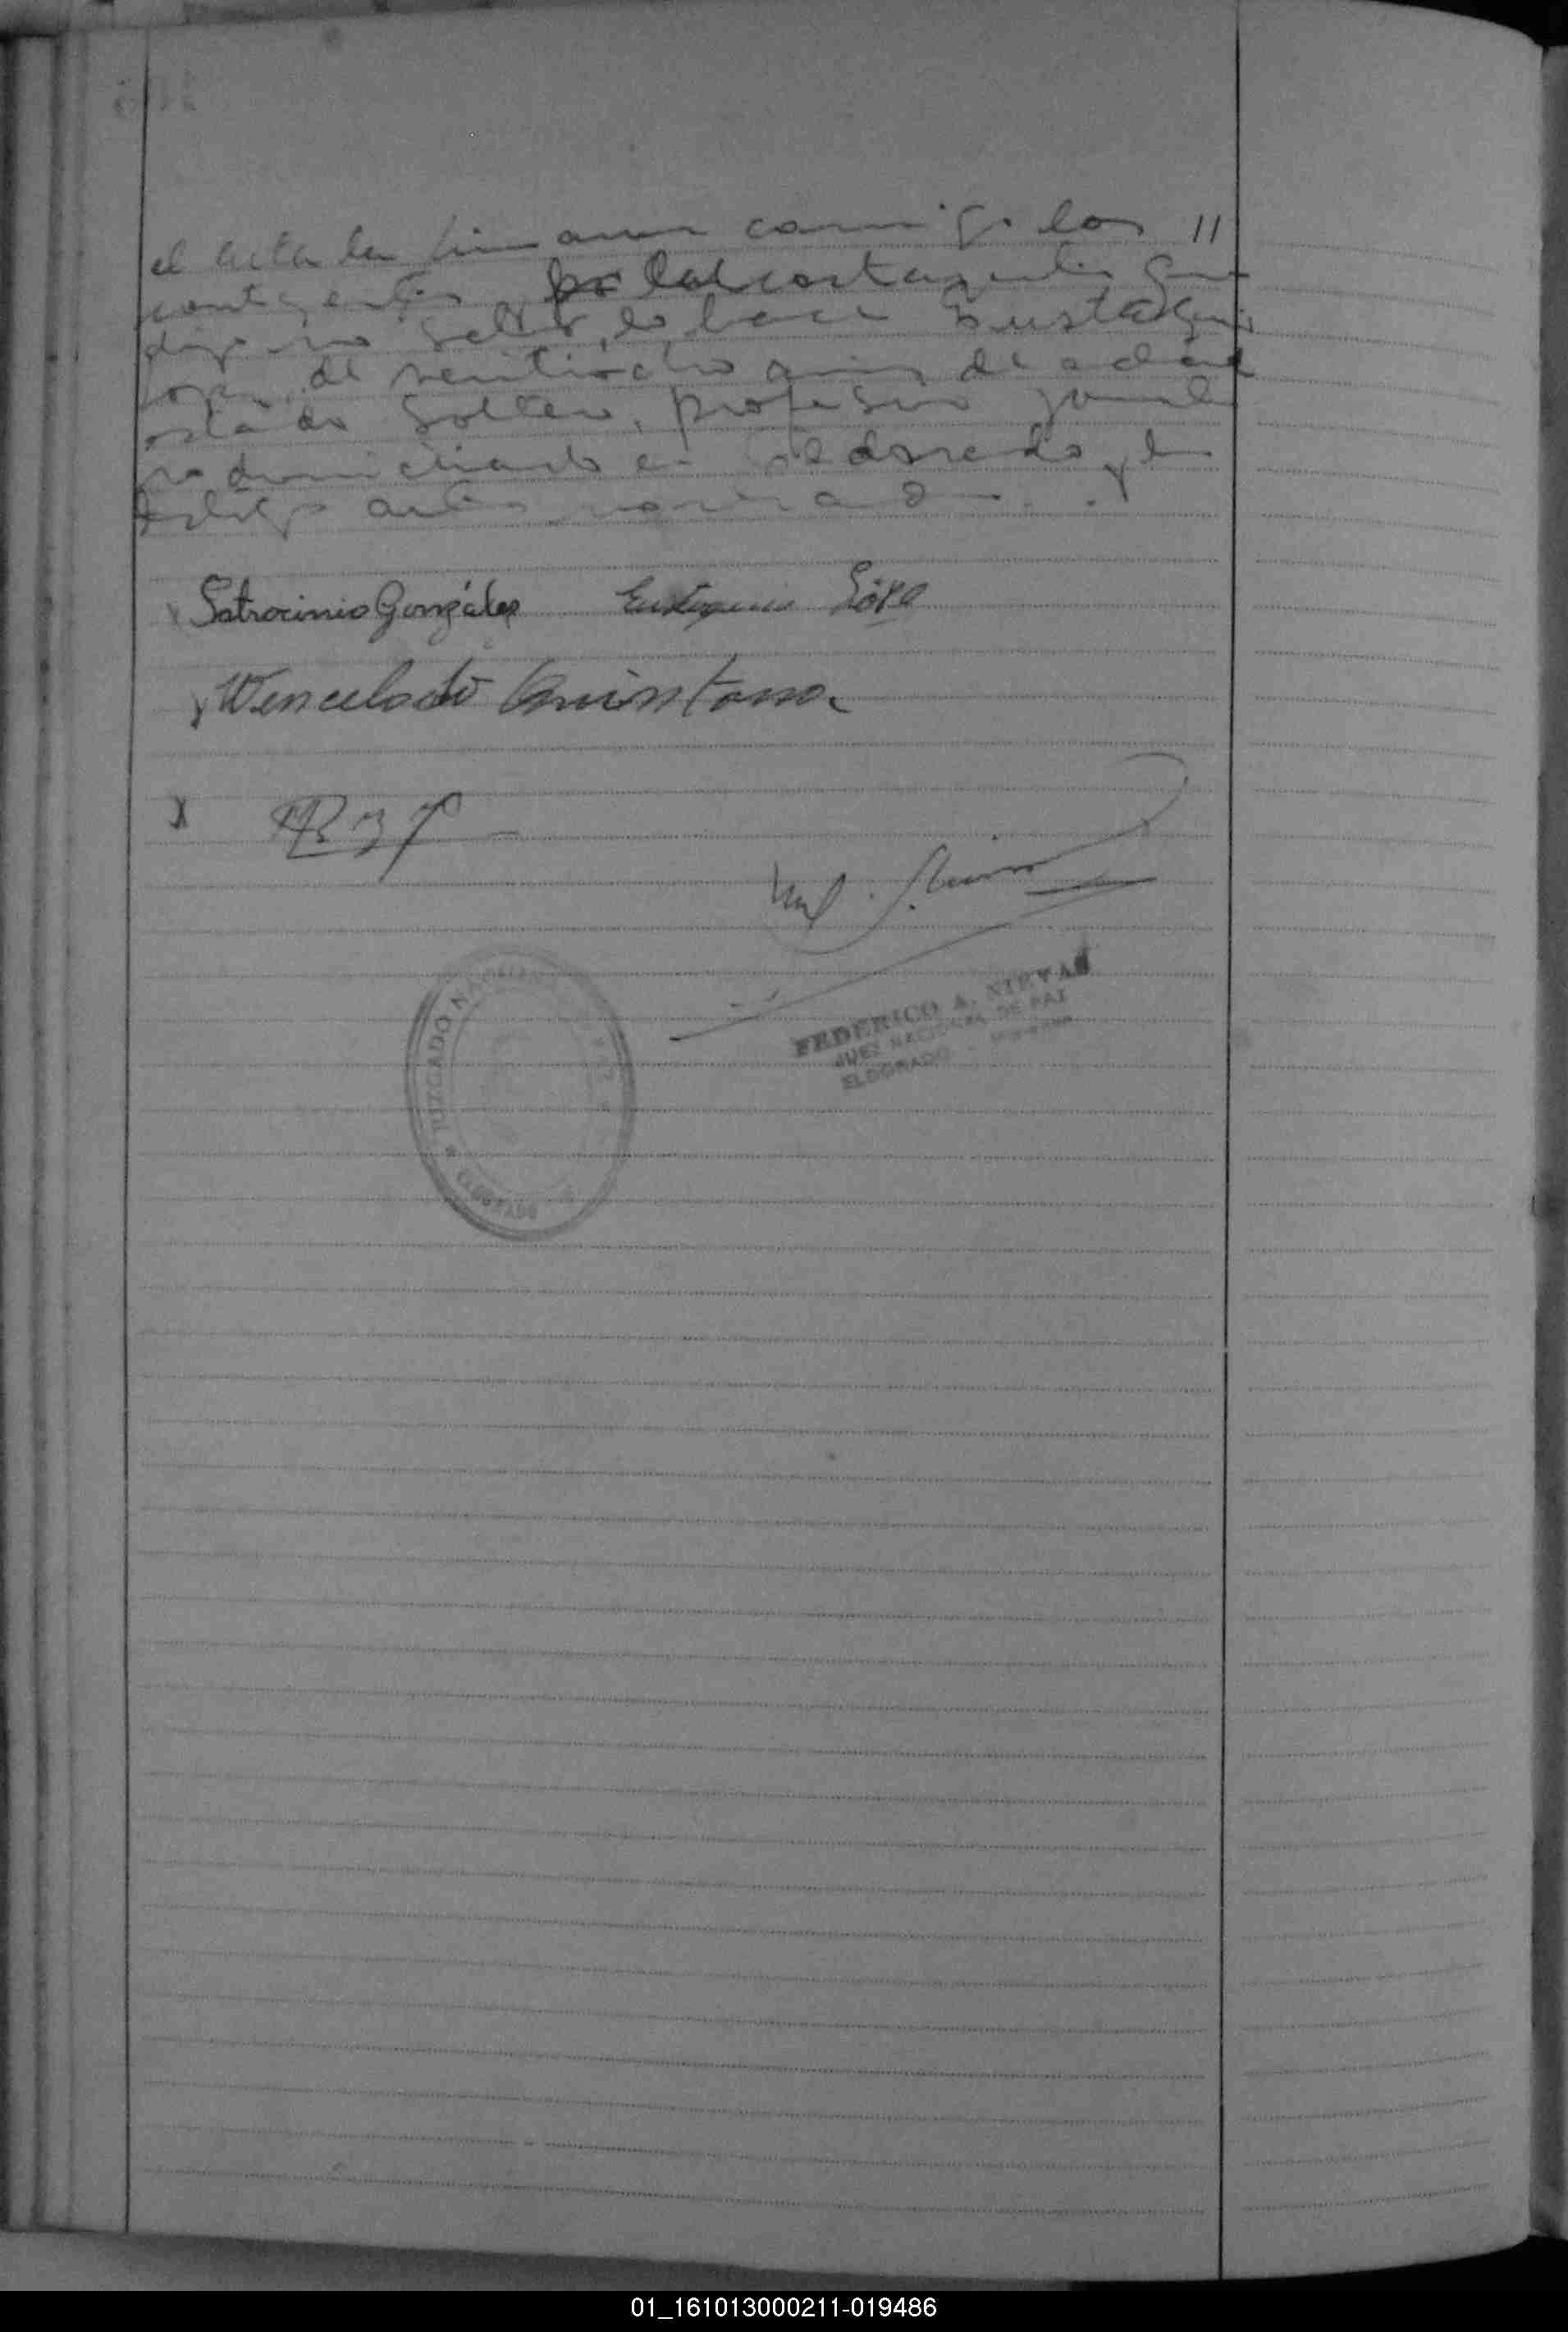 el acta la firmaron conmigo los "
contrayentes, por la contrayente que
dijo no saber, lo hace Eustaquio
Lopez, de veintiocho años de edad
estado soltero, profesion jornale
ro domiciliado en Eldorado, y los
testigos antes nombrados
Patrocinio González Eustaquio López
Wencelado Quintana
x
FEDERICO A. NIEVAS
JUEZ NACIONAL DE PAZ
ELDORADO - Misiones
JUZGADO NACIONAL DE PAZ
ELDORADO
01_161013000211-019486